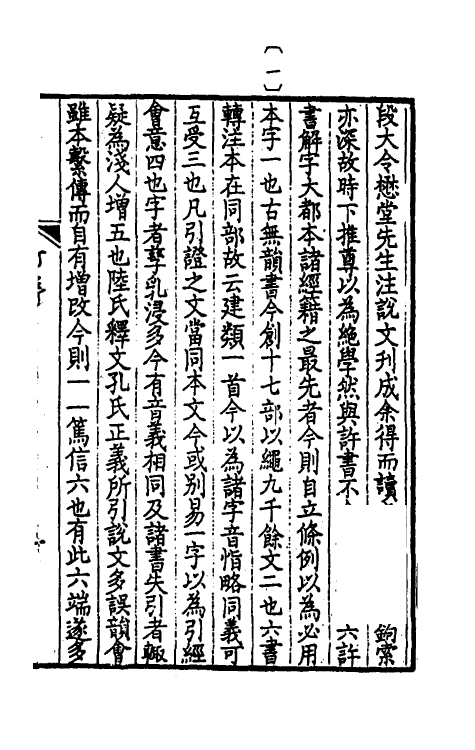 〔一〕
段大令懋堂先生注說文刊成余得而讀 鉤索
亦深故時下推尊以為絕學然與許書不 六許
書解字大都本諸經籍之最先者今則自立條例以為必用
本字一也古無韻書今創十七部以繩九千餘文二也六書
轉注本在同部故云建類一首今以為諸字音恉略同義可
互受三也凡引證之文當同本文今或別易一字以為引經
會意四也字者孳乳浸多今有音義相同及諸書失引者輒
疑為淺人增五也陸氏釋文孔氏正義所引說文多誤韻會
雖本繫傳而自有增改今則一一篤信六也有此六端遂多